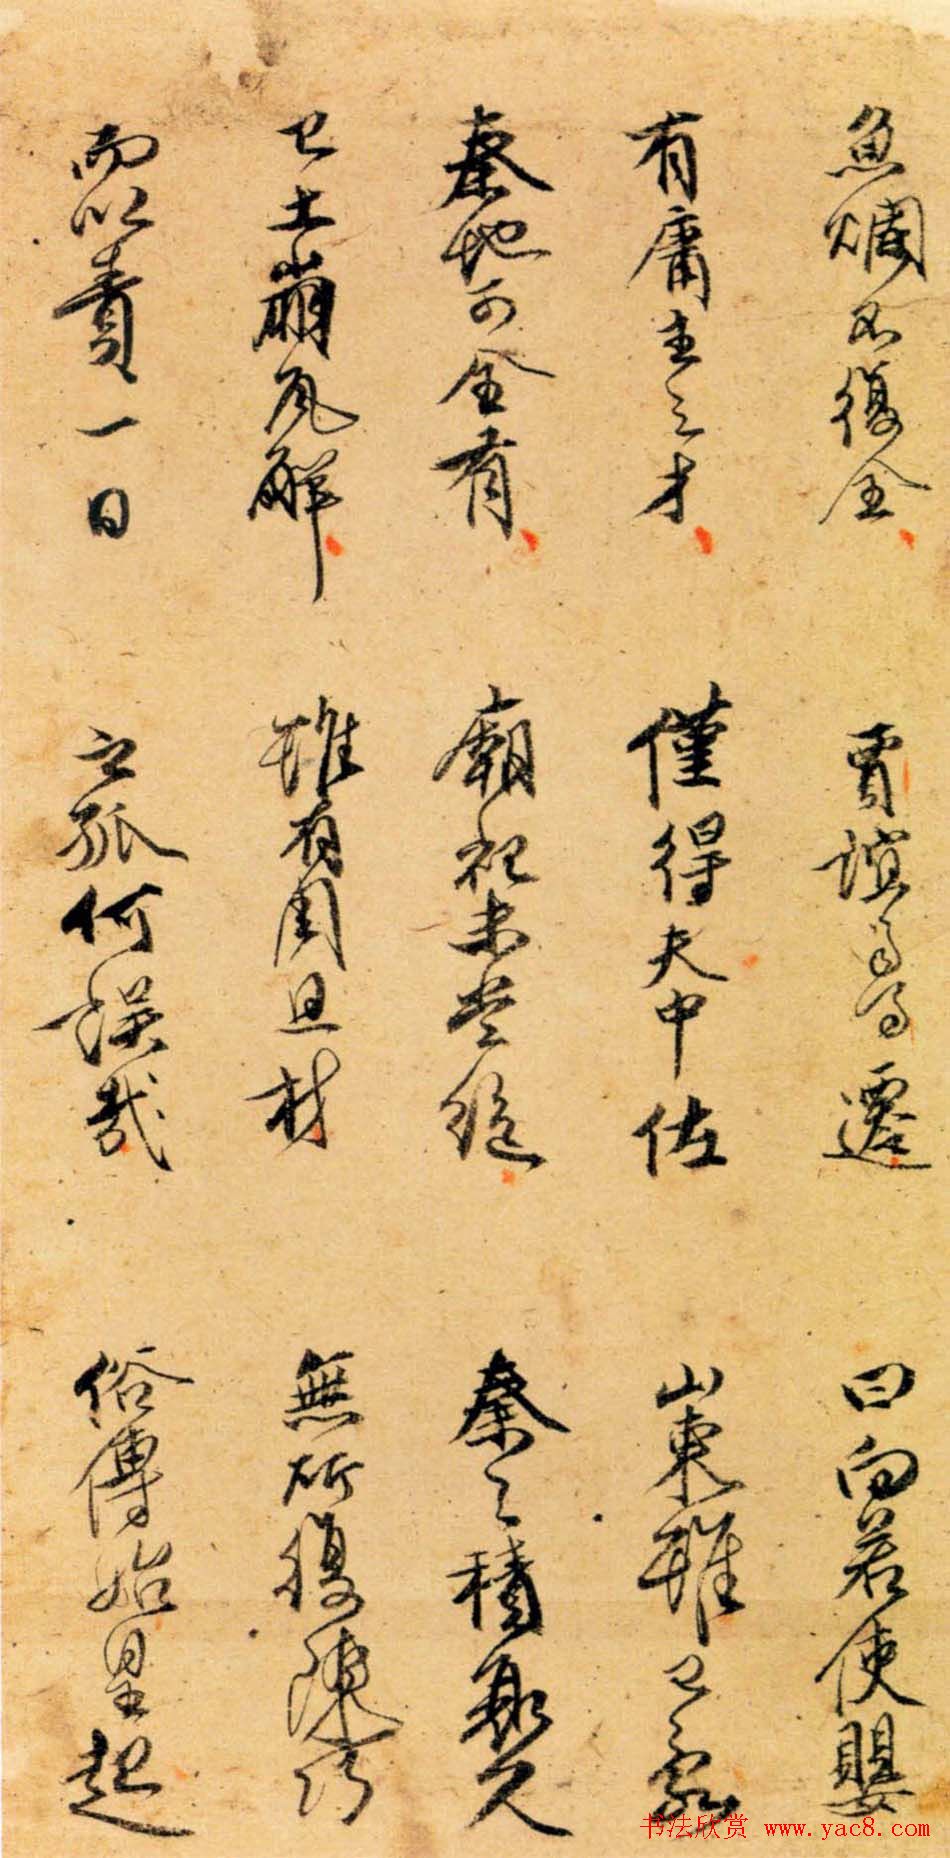 魚爛不復全 賈誼司馬遷 曰向若使嬰
有庸主之才 僅得夫中佐 山東雖已亂
秦地可全有 廟祀未當絕 秦之積衰久
已土崩瓦解 雖有周旦材 無所復陳巧
而以責一日 之孤何誤哉 俗傳始皇起
书法欣赏 www.yac8.com